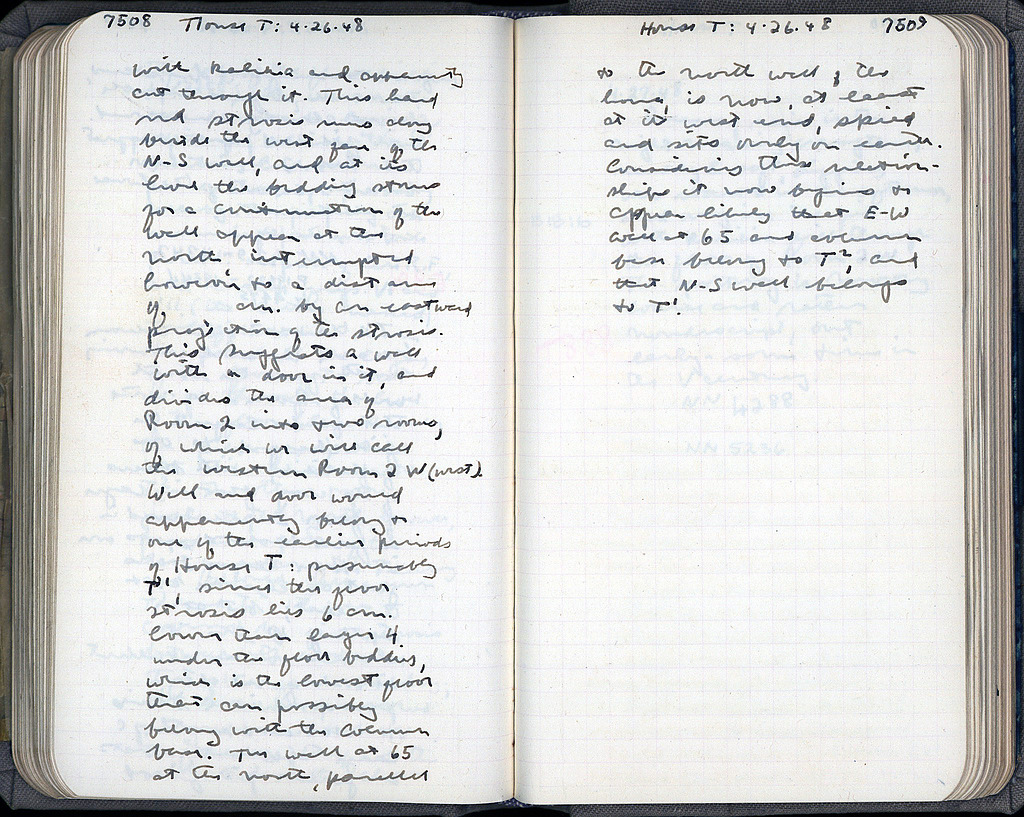 7508 House T: 4.26.48
with kalikia and apparently
cut through it. This hard
red strosis runs along
beside the west face of the
N-S wall, and at its
level the bedding stones
for a continuation of the
wall appear at the
north interrupted
however to a distance
of cm. by an eastward
projection of the strosis.
This suggests a wall
with a door in it, and
divides the area of
Room 2 into two rooms,
of which we will call
the western Room 2 W (west).
Wall and door would
apparently belong to
one of the earlier periods
of House T: presumably
T¹, since the floor
strosis lies 6 cm.
lower than layer 4
under the floor bedding,
which is the lowest floor
that can possibly
belong with the column
base. The wall at 65
at the north, parallel
House T: 4.26.48 7509
to the north wall of the
house, is now, at least
at its west end,
and sits only on earth.
Considering these relation-
ships it now begins to
appear likely that E-W
wall at 65 and column
base belong to T², and
that N-S wall belongs
to T¹.